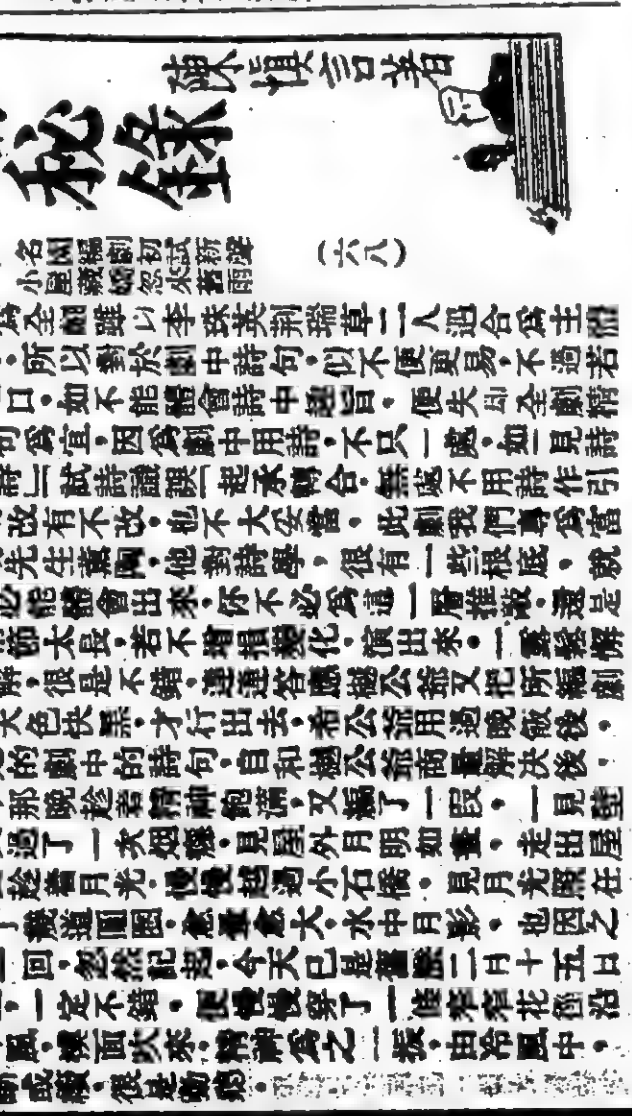 陳慎言著
秘錄
(六八)
名園編劇初試新聲
小屋藏嬌忽來舊雨
為全劇雖以李珠英荊瑞草二人遇合為主
,所以對於劇中詩句,似不便更易,不過若
口,如不能體會詩中趣旨,便失却全劇精
可為宜,因為劇中用詩,不只一處,如一見詩
詩」試詩議誤「起承轉合,無處不用詩作引
改有不改,也不大妥當,此劇我們專為富
先生薰陶,他對詩學,很有一些根底,就
必能體會出來,你不必為這一層推敲,還是
節太長,若不增損變化,演出來,一露鬆懈
解,很是不錯,連連答應,樾公爺又把所編劇
天色快黑,才行出去,希公爺用過晚飯後,
的劇中的詩句,自和樾公爺商量解決後,
那晚趁著精神飽滿,又編了一段,一見
過了一次烟癮,見屋外月明如晝,走出屋
趁着月光,慢慢越過小石橋,見月光照在
了幾道圓圈,愈盪愈大,水中月影,也因之
回,忽然記起,今天已是舊曆二月十五日
,一定不錯,便慢慢穿了一條窄窄花徑,沿
風,撲面吹來,精神為之一振,由冷風中,
斷或續,很是動聽,